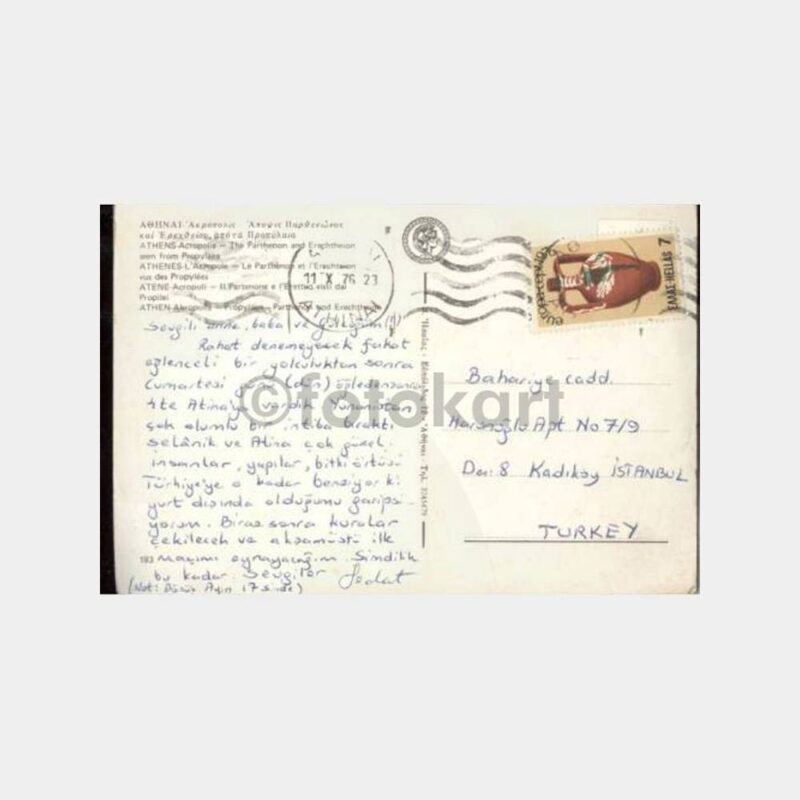 ΑΘΗΝΑΙ-Ἀκρόπολις - Ἄποψις Παρθενῶνος
καί Ἐρεχθείου ἀπό τά Προπύλαια
ATHENS-Acropolis - The Parthenon and Erechtheion
seen from Propylaea
ATHENES-L'Acropole - Le Parthénon et l'Erechteion
vus des Propylées
ATENE-Acropoli - Il Partenone e l'Eretteo visti dai
Propilei
ATHEN-Akropolis - Parthenon und Erechtheion
11 X 76 23
EUROPA CEPT 1976
ΕΛΛΑΣ HELLAS 7
Sevgili anne, baba ve
Rahat denemeyecek fakat
eğlenceli bir yolculuktan sonra
Cumartesi günü (dün) öğledensonra
4te Atina'ya vardık Yunanistan
çok olumlu bir intiba bıraktı
Selânik ve Atina çok güzel.
İnsanlar, yapılar, bitki örtüsü
Türkiye'ye o kadar benziyor ki
yurt dışında olduğumu garipsi-
yorum. Biraz sonra kuralar
çekilecek ve akşamüstü ilk
193 maçımı oynayacağım. Şimdilik
bu kadar. Sevgiler Sedat
(Not: Dönüş Ayın 17sinde)
Bahariye cadd.
Apt No 7/9
Da: 8 Kadıköy İSTANBUL
TURKEY
©fotokart